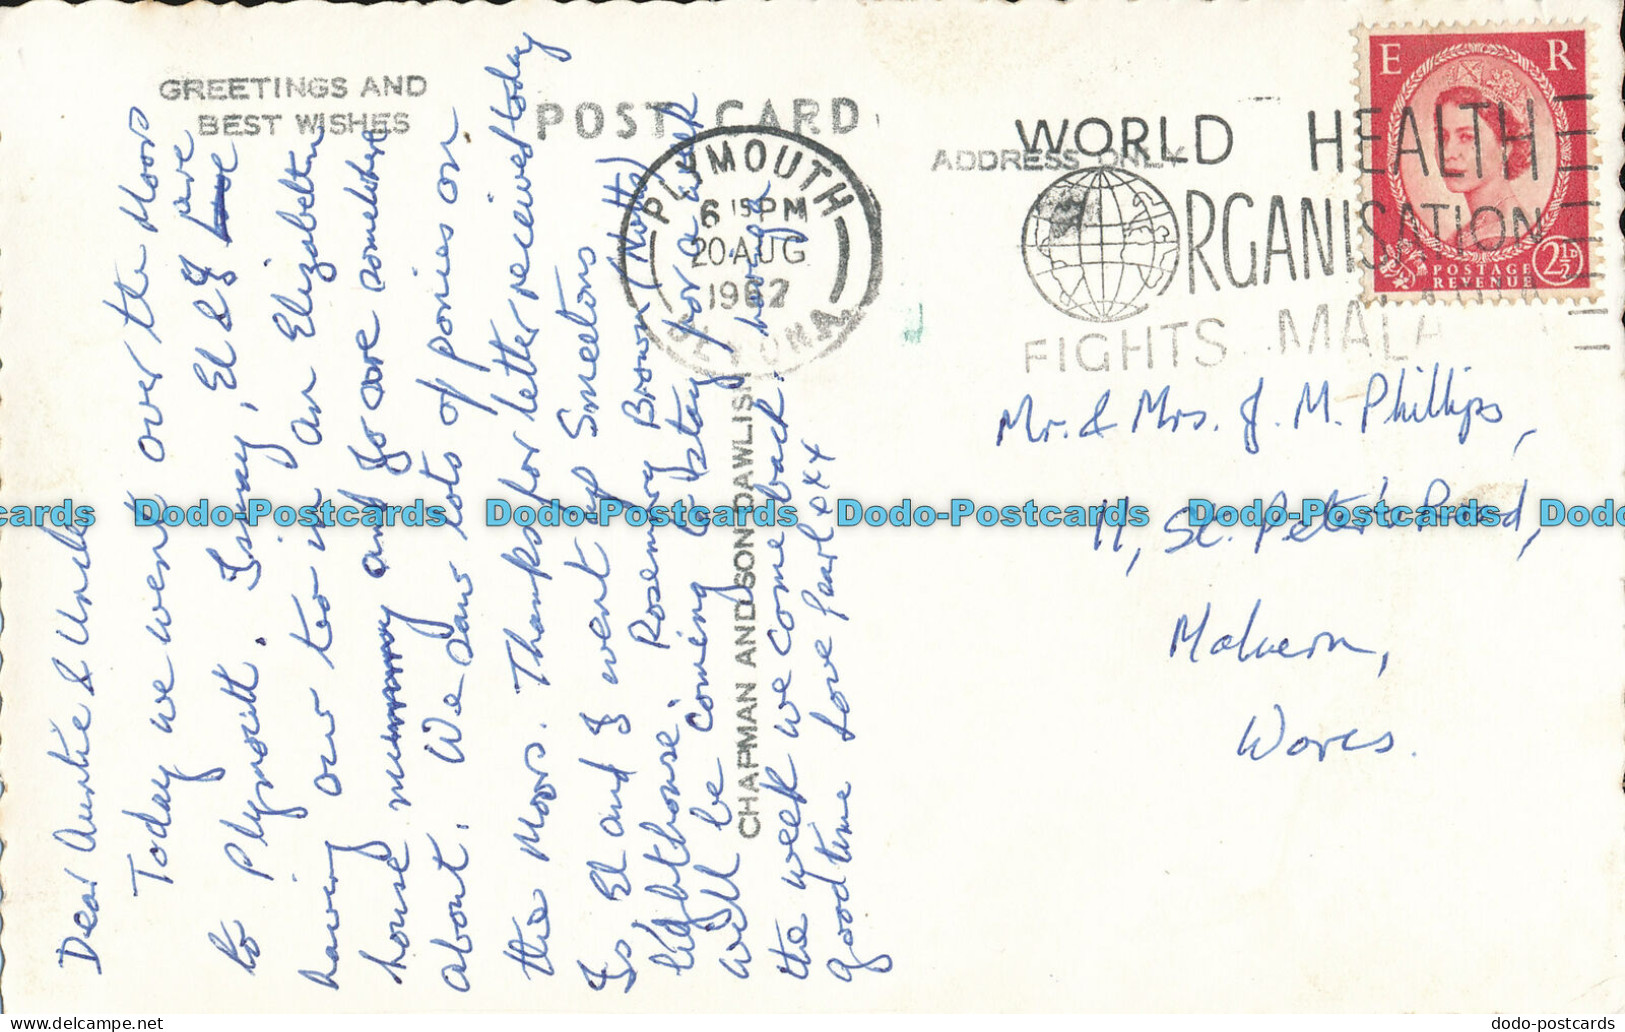 GREETINGS AND
BEST WISHES
POST CARD
ADDRESS ONLY
PLYMOUTH
6 15 PM
20 AUG
1962
DEVON
WORLD HEALTH
ORGANISATION
FIGHTS MALARIA
E R
POSTAGE
REVENUE
2½D
Dear Auntie & Uncle
Today we went over the Moors
to Plymouth. Ismay, El & I are
having our tea in an Elizabethan
house and Jo are somewhere
about. We saw lots of ponies on
the Moors. Thanks for letter received today
Is El and I went up Smeetons
lighthouse. Rosemary Brown (Notts)
will be coming to stay for a week
the week we come back.
good time Love Pearl xxx
CHAPMAN AND SON DAWLISH
Mr. & Mrs. J. M. Phillips,
11, St. Peter's Road,
Malvern,
Worcs.
Dodo-Postcards Dodo-Postcards Dodo-Postcards Dodo-Postcards Dodo-Postcards
delcampe.net
dodo-postcards